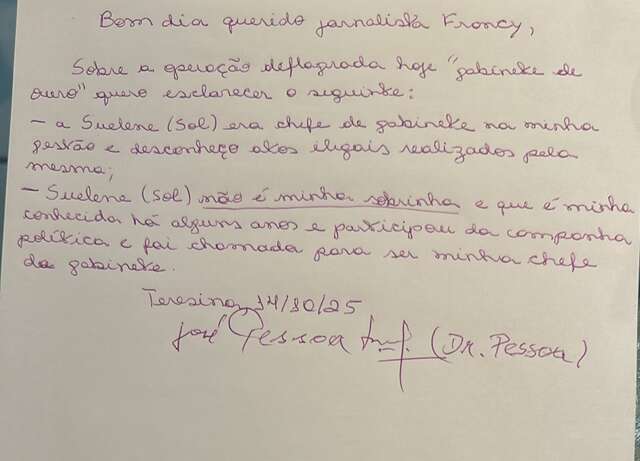 Bom dia querido jornalista Francy,
Sobre a operação deflagrada hoje "gabinete de
ouro" quero esclarecer o seguinte:
- a Suelene (Sol) era chefe de gabinete na minha
gestão e desconheço atos ilegais realizados pela
mesma;
- Suelene (Sol) não é minha sobrinha e que é minha
conhecida há alguns anos e participou da companha
política e foi chamada para ser minha chefe
de gabinete.
Teresina, 14/10/25
José Pessoa (Dr. Pessoa)